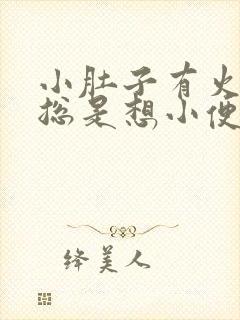 小肚子有火
总是想小便
绛美人